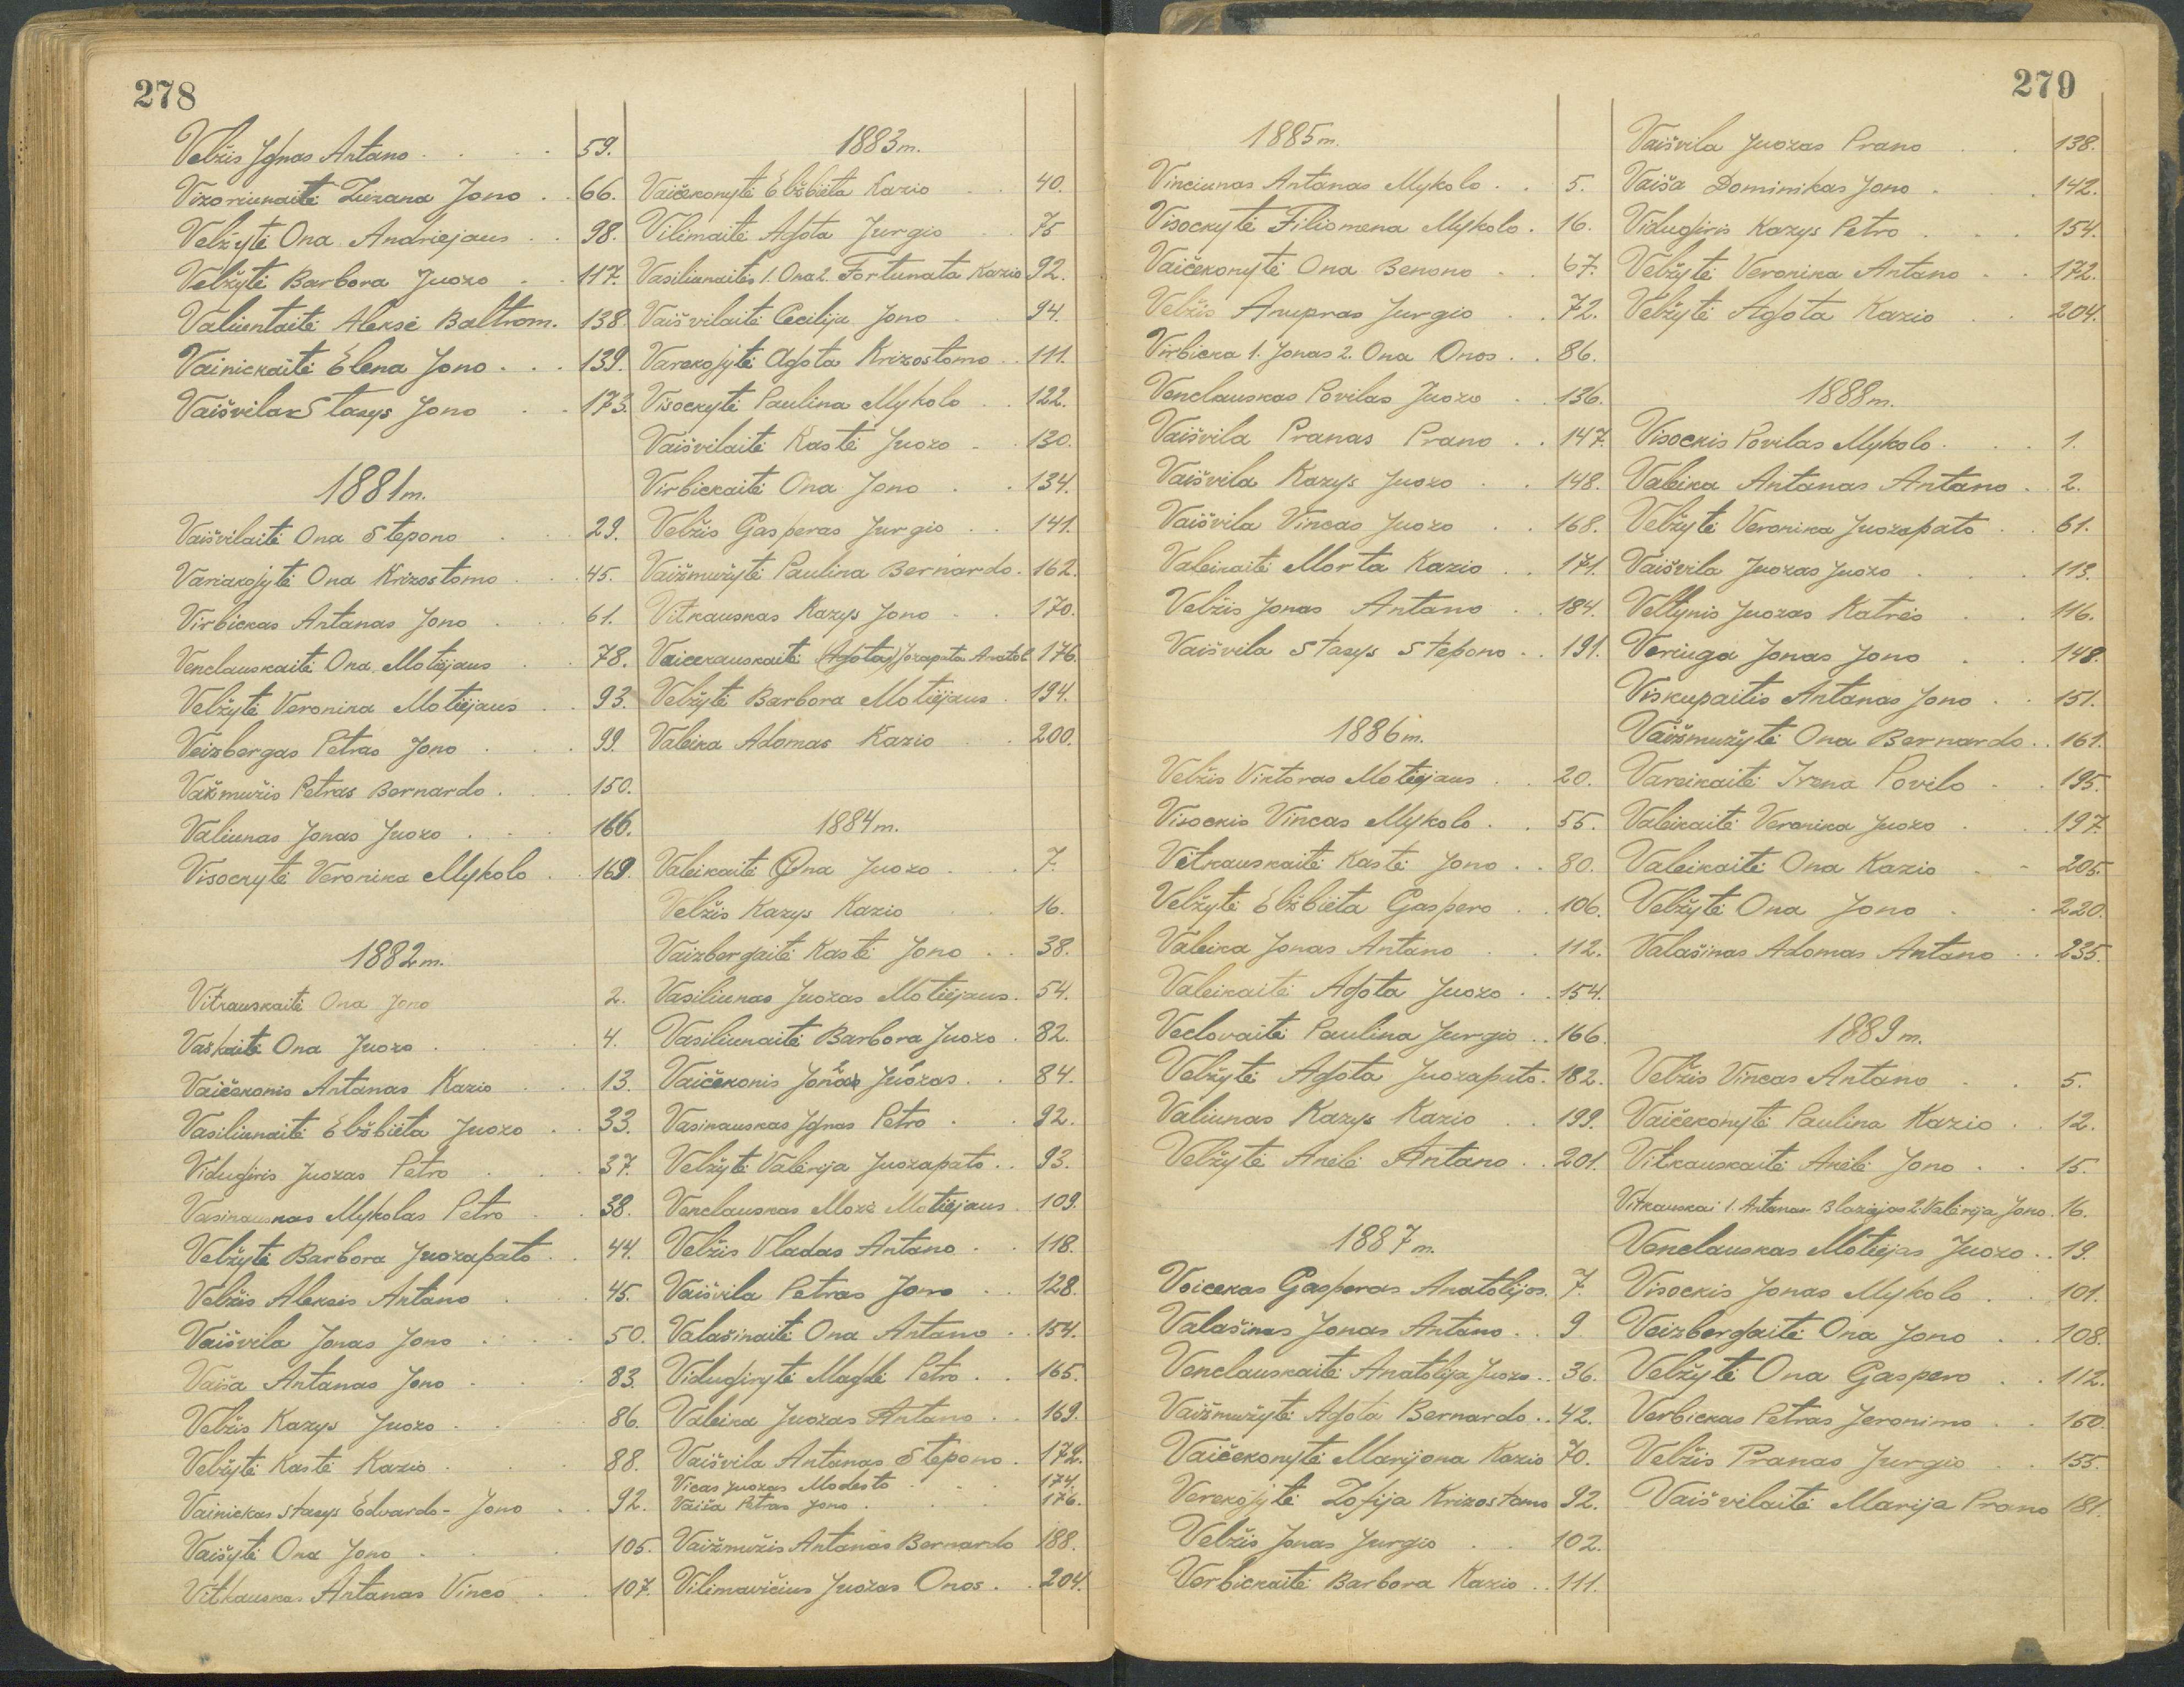 278
Velžis Ignas Antano 59.
Vizoriunaitė Zuzana Jono 66.
Velžytė Ona Andriejaus 98.
Velžytė Barbora Juozo 117.
Valiuntaitė Aleksė Baltrom. 138
Vainickaitė Elena Jono 139.
Vaišvila Stasys Jono 173.
1881 m.
Vaišvilaitė Ona Stepono 29.
Variakojytė Ona Krizostomo 45.
Virbickas Antanas Jono 61.
Venclauskaitė Ona Motiejaus 78.
Velžytė Veronika Motiejaus 93.
Veizbergas Petras Jono 99.
Važmužis Petras Bernardo 150.
Valiunas Jonas Juozo 166.
Visockytė Veronika Mykolo 169.
1882 m.
Vitkauskaitė Ona Jono 2.
Vaškaitė Ona Juozo 4.
Vaičekonis Antanas Kazio 13.
Vasiliunaitė Elžbieta Juozo 33.
Vidugiris Juozas Petro 37.
Vasinauskas Mykolas Petro 38.
Velžytė Barbora Juozapato 44.
Velžis Aleksis Antano 45.
Vaišvila Jonas Jono 50.
Vaiša Antanas Jono 83.
Velžis Kazys Juozo 86.
Velžytė Kastė Kazio 88.
Vainickas Stasys Edvardo-Jono 92.
Vaišytė Ona Jono 105.
Vitkauskas Antanas Vinco 107.
1883 m.
Vaičekonytė Elžbieta Kazio 40.
Vilimaitė Agota Jurgio 75
Vasiliunaitės 1. Ona 2. Fortunata Kazio 92.
Vaišvilaitė Cecilija Jono 94.
Varekojytė Agota Krizostomo 111.
Visockytė Paulina Mykolo 122.
Vaišvilaitė Kastė Juozo 130.
Virbickaitė Ona Jono 134.
Velžis Gasperas Jurgio 141.
Vaižmužytė Paulina Bernardo 162.
Vitkauskas Kazys Jono 170.
Vaicekauskaitė (Agota) Juzapata Anatol 176.
Velžytė Barbora Motiejaus 194.
Valeika Adomas Kazio 200.
1884 m.
Valeikaitė Ona Juozo 7.
Velžis Kazys Kazio 16.
Vaizbergaitė Kastė Jono 38.
Vasiliunas Juozas Motiejaus 54.
Vasiliunaitė Barbora Juozo 82.
Vaičekonis Jonas Juozas 84.
Vasinauskas Ignas Petro 92.
Velžytė Valerija Juozapato 93.
Venclauskas Mozė Motiejaus 109.
Velžis Vladas Antano 118.
Vaišvila Petras Jono 128.
Valašinaitė Ona Antano 154.
Vidugirytė Magdė Petro 165.
Valeika Juozas Antano 169.
Vaišvila Antanas Stepono 172.
Vicas Juozas Modesto 174.
Vaiša Petras Jono 176.
Vaižmužis Antanas Bernardo 188.
Vilimavičius Juozas Onos 204.
279
1885 m.
Vinciunas Antanas Mykolo 5.
Visockytė Filiomena Mykolo 16.
Vaičekonytė Ona Benono 67.
Velžis Anupras Jurgio 72.
Virbicka 1. Jonas 2. Ona Onos 86.
Venclauskas Povilas Juozo 136.
Vaišvila Pranas Prano 147.
Vaišvila Kazys Juozo 148.
Vaišvila Vincas Juozo 168.
Valeikaitė Morta Kazio 171.
Velžis Jonas Antano 184.
Vaišvila Stasys Stepono 191.
1886 m.
Velžis Viktoras Motiejaus 20.
Visockis Vincas Mykolo 55.
Vitkauskaitė Kastė Jono 80.
Velžytė Elžbieta Gaspero 106.
Valeika Jonas Antano 112.
Valeikaitė Agota Juozo 154.
Veclovaitė Paulina Jurgio 166.
Velžytė Agota Juozapato 182.
Valiunas Kazys Kazio 199.
Velžytė Anelė Antano 201.
1887 m.
Voicekas Gasperas Anatolijos 7.
Valašinas Jonas Antano 9.
Venclauskaitė Anatolija Juozo 36.
Vaižmužytė Agota Bernardo 42.
Vaičekonytė Marijona Kazio 70.
Verekojytė Zofija Krizostomo 92.
Velžis Jonas Jurgio 102.
Verbickaitė Barbora Kazio 111.
Vaišvila Juozas Prano 138.
Vaiša Dominikas Jono 142.
Vidugiris Kazys Petro 154.
Velžytė Veronika Antano 172.
Velžytė Agota Kazio 204.
1888 m.
Visockis Povilas Mykolo 1.
Valeika Antanas Antano 2.
Velžytė Veronika Juozapato 61.
Vaišvila Juozas Juozo 113.
Veltynis Juozas Katrės 116.
Veriuga Jonas Jono 148.
Viskupaitis Antanas Jono 151.
Vaižmužytė Ona Bernardo 161.
Vareikaitė Irena Povilo 195.
Valeikaitė Veronika Juozo 197.
Valeikaitė Ona Kazio 205.
Velžytė Ona Jono 220.
Valašinas Adomas Antano 235.
1889 m.
Velžis Vincas Antano 5.
Vaičekonytė Paulina Kazio 12.
Vitkauskaitė Anelė Jono 15.
Vitkauskai 1. Antanas Blaziejas 2. Valerija Jono 16.
Venclauskas Motiejas Juozo 19.
Visockis Jonas Mykolo 101.
Veizbergaitė Ona Jono 108.
Velžytė Ona Gaspero 112.
Verbickas Petras Jeronimo 150.
Velžis Pranas Jurgio 155.
Vaišvilaitė Marija Prano 181.